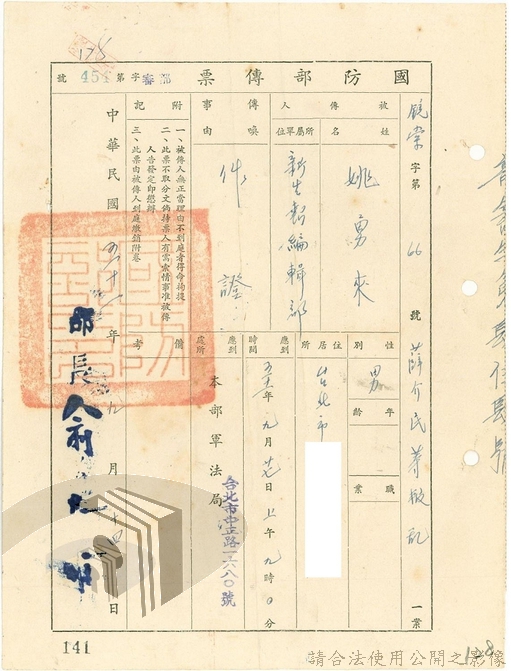 178
國防部傳票
部審字第 451 號
字第 66 號 薛介民等叛亂 一案
被傳人
姓名
姚勇來
所屬單位
新生報編輯部
性別
男
年齡
職業
住居所
台北市
傳喚事由
作證
應到時間
五十一年九月廿七日上午九時0分
應到處所
本部軍法局
台北市中正路一六八〇號
附記
一、被傳人無正當理由不到庭者得命拘提
二、此票不取分文倘持票人有需索情事准被傳人告發定即懲辦
三、此票由被傳人到庭繳銷附卷
備考
中華民國五十一年九月十四日
部長俞大維
141
128
請合法使用公開之影像